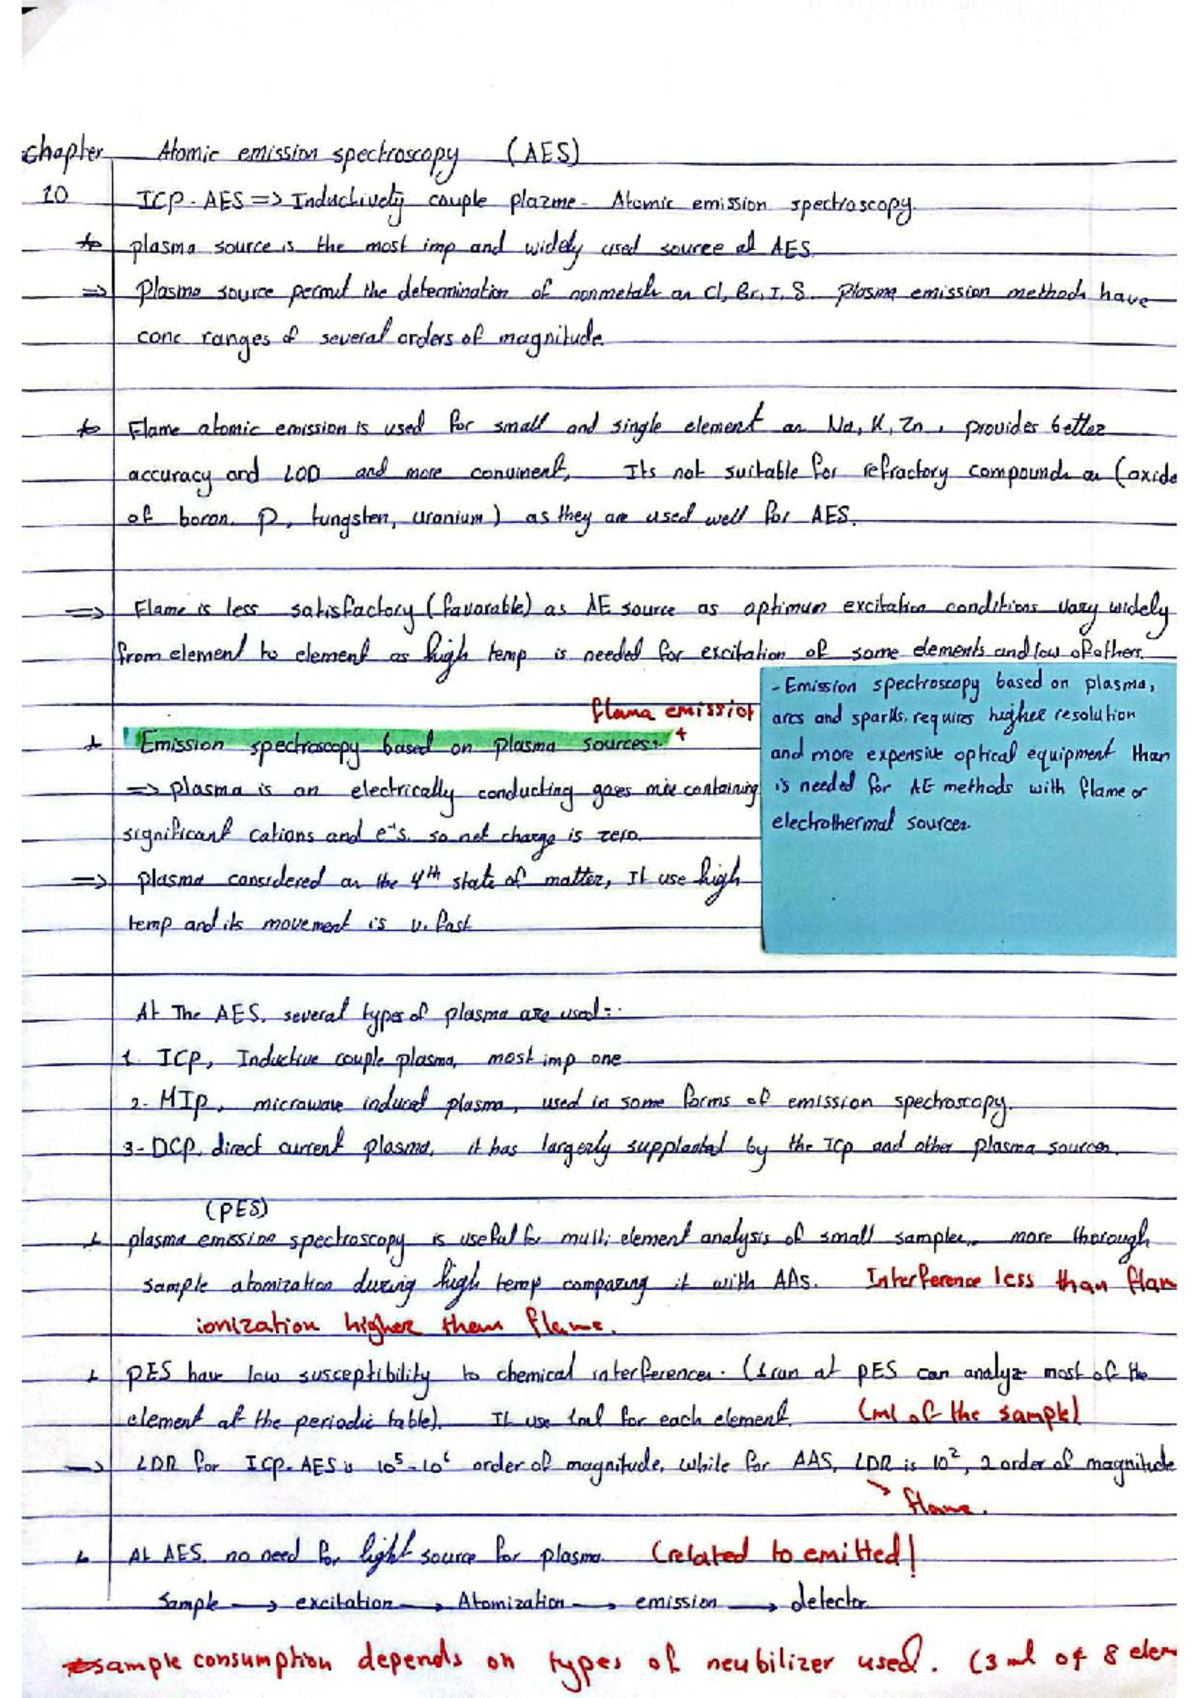 chapter Atomic emission spectroscopy (AES)
10 ICP-AES => Inductively couple plazme - Atomic emission spectroscopy
* plasma source is the most imp and widely used source at AES
=> Plasma source permit the determination of nonmetals as Cl, Br, I, S. Plasma emission methods have
conc ranges of several orders of magnitude.
* Flame atomic emission is used for small and single element as Na, K, Zn, provides better
accuracy and LOD and more convinent, Its not suitable for refractory compounds as (oxide
of boron, P, tungsten, uranium) as they are used well for AES.
=> Flame is less satisfactory (favorable) as AE source as optimum excitation conditions vary widely
from element to element as high temp is needed for excitation of some elements and low of others.
flama emission
* Emission spectroscopy based on plasma sources:-
=> plasma is an electrically conducting gases mix containing
significant cations and e-s. so net charge is zero.
=> plasma considered as the 4th state of matter, It use high
temp and its movement is v. fast
- Emission spectroscopy based on plasma,
arcs and sparks, requires higher resolution
and more expensive optical equipment than
is needed for AE methods with flame or
electrothermal sources.
At The AES. several types of plasma are used:-
1. ICP, Inductive couple plasma, most imp one
2- MIP, microwave induced plasma, used in some forms of emission spectroscopy.
3- DCP, direct current plasma, it has largerly supplanted by the ICP and other plasma sources.
(PES)
* plasma emission spectroscopy is useful for multi element analysis of small samples, more thorough
sample atomization during high temp comparing it with AAs. Interference less than flam
ionization higher them flame.
* PES have low susceptibility to chemical interferences. (1 run at PES can analyze most of the
element at the periodic table). It use 1ml for each element. (ml of the sample)
=> LDR for ICP-AES is 10⁵-10⁶ order of magnitude, while for AAS, LDR is 10², 2 order of magnitude
flame.
* At AES, no need for light source for plasma. (related to emitted)
Sample → excitation → Atomization → emission → detector
*sample consumption depends on types of neubilizer used. (3 ml of 8 elem